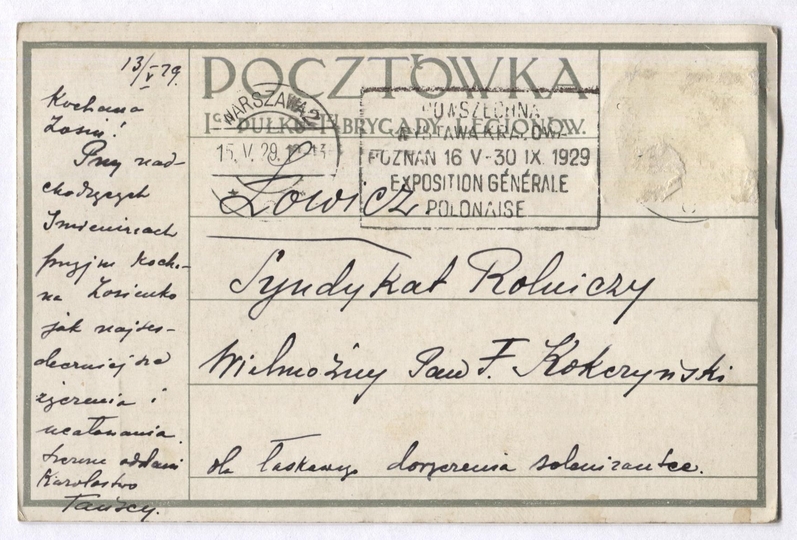 POCZTÓWKA
IGO PUŁKU I BRYGADY LEGIONÓW.
WARSZAWA 2
15. V. 29.
POWSZECHNA
WYSTAWA KRAJOWA
POZNAN 16 V-30 IX. 1929
EXPOSITION GÉNÉRALE
POLONAISE
13/V 29.
Kochana
Zosiu!
Przy nad-
chodzących
Imieninach
przyjm Kocha-
na Zosieńko
jak najser-
deczniejsze
życzenia i
ucałowania.
szczerze oddani
Karolostwo
Tańscy.
Łowicz
Syndykat Rolniczy
Wielmożny Pan F. Kokczyński
dla łaskawego doręczenia solenizantce.